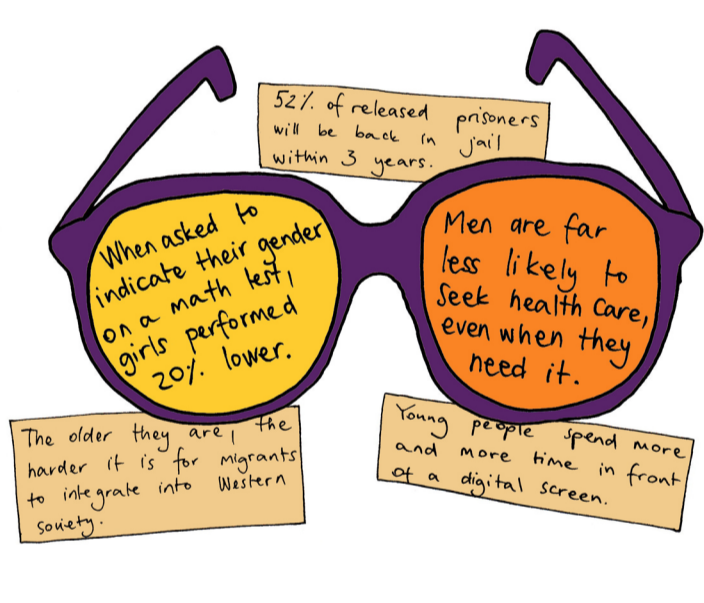 52% of released prisoners
will be back in jail
within 3 years.
When asked to
indicate their gender
on a math test,
girls performed
20% lower.
Men are far
less likely to
Seek health care,
even when they
need it.
The older they are, the
harder it is for migrants
to integrate into Western
society.
Young people spend more
and more time in front
of a digital screen.